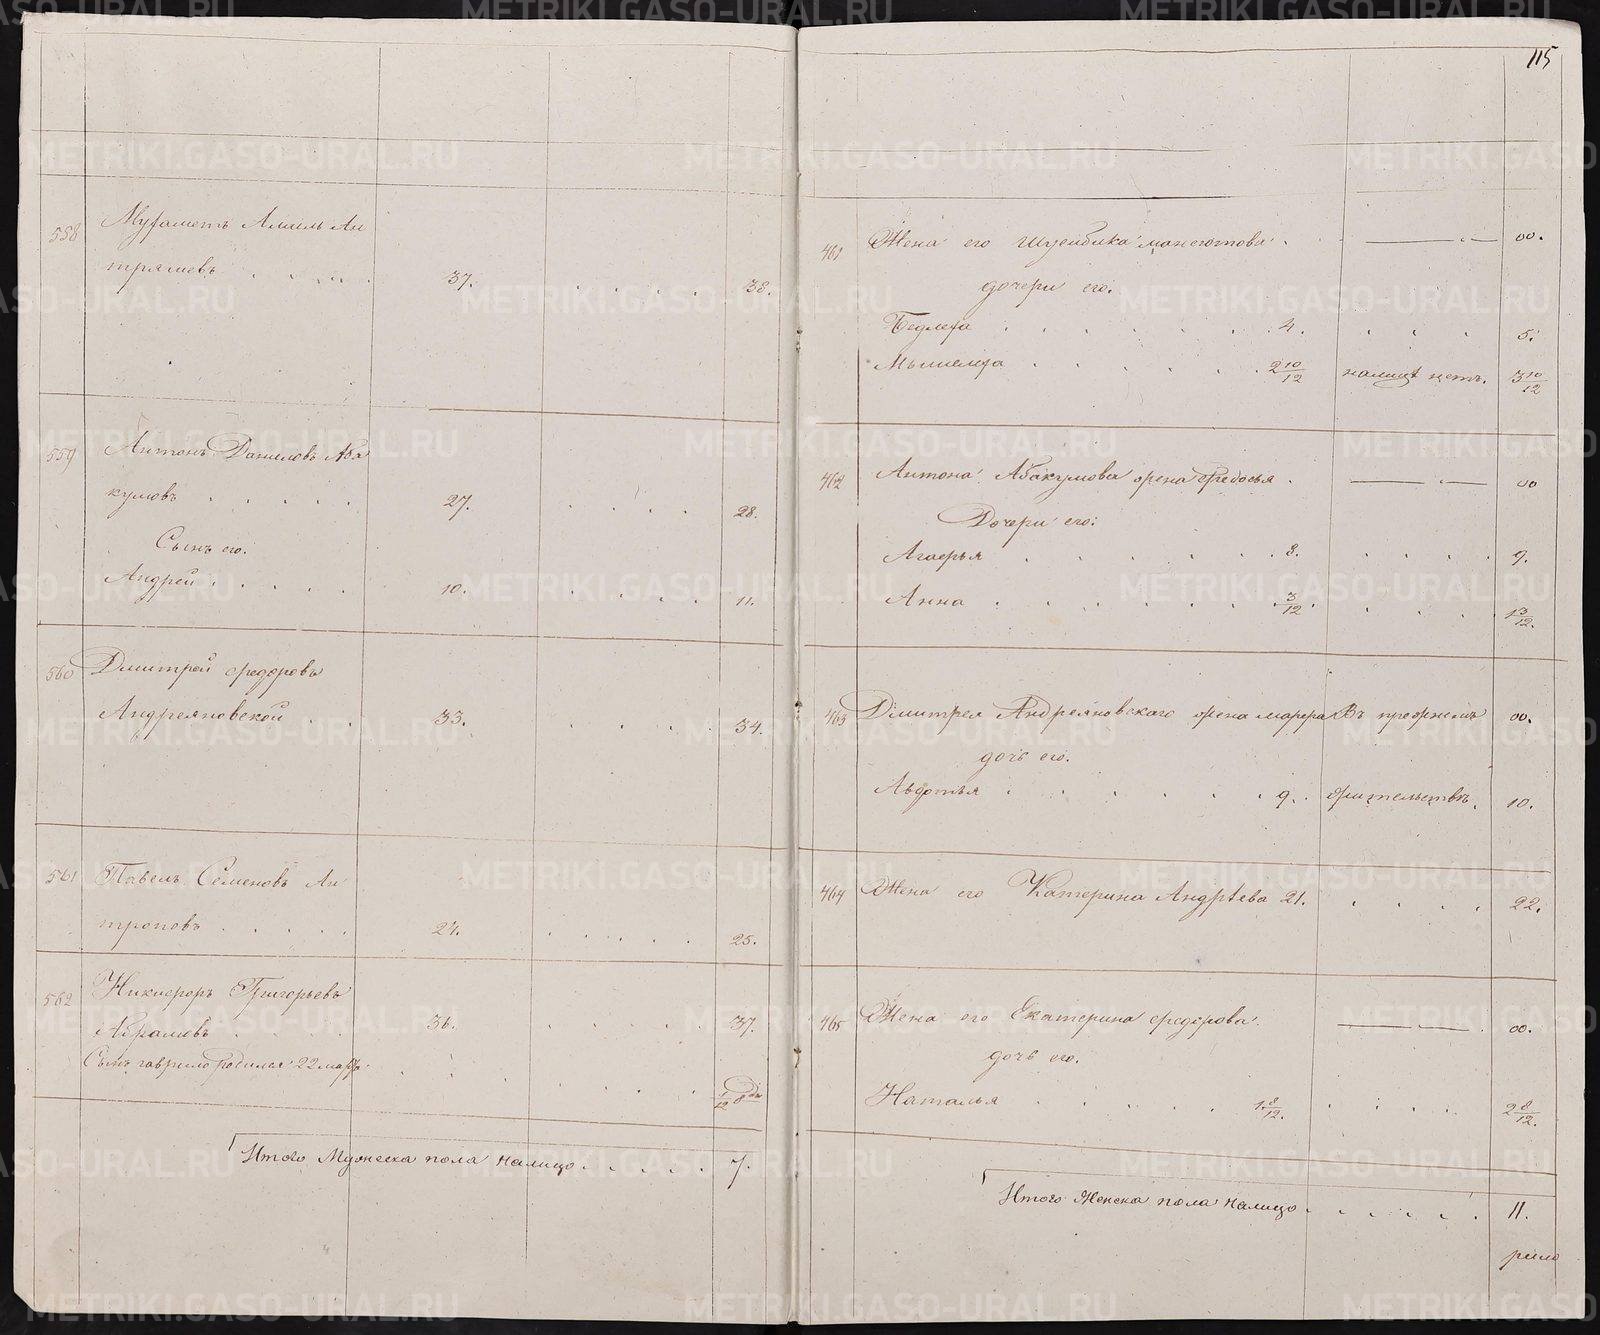 115
558 Мухаметъ Амиль Ан
трячевъ 37. 38.
559 Антонъ Даниловъ Аба
кумовъ 27. 28.
Сынъ его.
Андрей 10. 11.
560 Дмитрей Федоровъ
Андреяновской 33. 34.
561 Павелъ Семеновъ Ан
троповъ 24. 25.
562 Никифоръ Григорьевъ
Абрамовъ 36. 37.
Сынъ Гаврило родился 22 мар
Итого Мужеска пола налицо 7.
461 Жена его 00.
дочери его.
4. 5.
2 10/12 налицѣ нетъ. 3 10/12
462 Антона Абакумова жена Федосья 00
Дочери его:
Агафья 8. 9.
Анна 3/12 1 3/12.
463 Дмитрея Андреяновскаго жена Марфа Въ прежнемъ 00.
дочь его.
Авдотья 9. жительствѣ. 10.
464 Жена его Катерина Андрѣева 21. 22.
465 Жена его Екатерина Федорова 00.
дочь его.
Наталья 1 8/12. 2 8/12.
Итого Женска пола налицо 11.
METRIKI.GASO-URAL.RU